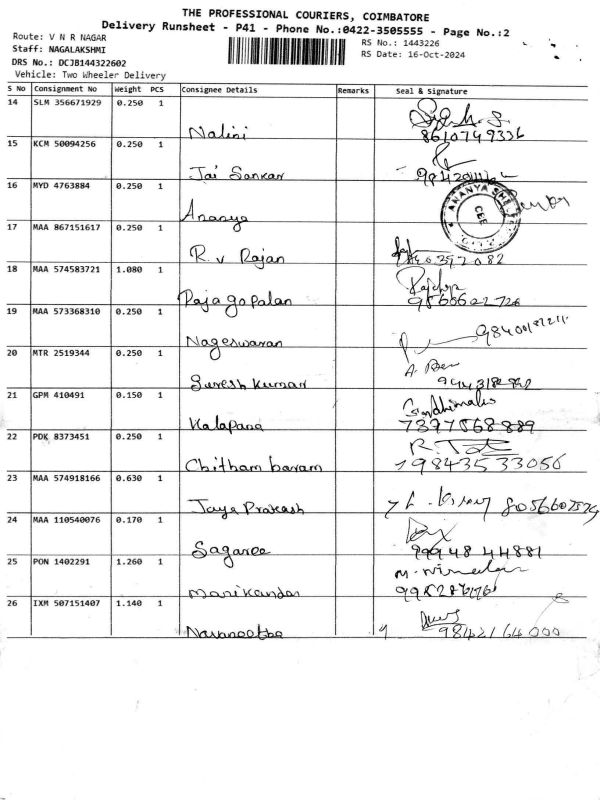 THE PROFESSIONAL COURIERS, COIMBATORE
Delivery Runsheet - P41 - Phone No.:0422-3505555 - Page No.:2
Route: V N R NAGAR
Staff: NAGALAKSHMI
DRS No.: DCJB144322602
Vehicle: Two Wheeler Delivery
RS No.: 1443226
RS Date: 16-Oct-2024
S No Consignment No Weight PCS Consignee Details Remarks Seal & Signature
14 SLM 356671929 0.250 1
Nalini 8610749336
15 KCM 50094256 0.250 1
Jai Sankar
16 MYD 4763884 0.250 1
Ananya
17 MAA 867151617 0.250 1
R. v Rajan
18 MAA 574583721 1.080 1
Rajagopalan
19 MAA 573368310 0.250 1
Nageswaran
20 MTR 2519344 0.250 1
Suresh Kumar
21 GPM 410491 0.150 1
Kalapana 7397568889
22 PDK 8373451 0.250 1
Chitham baram 9843533056
23 MAA 574918166 0.630 1
Jaya Prakash
24 MAA 110540076 0.170 1
Sagaree 9994844881
25 PON 1402291 1.260 1
Marikandan
26 IXM 507151407 1.140 1
Navaneetha 9842164000